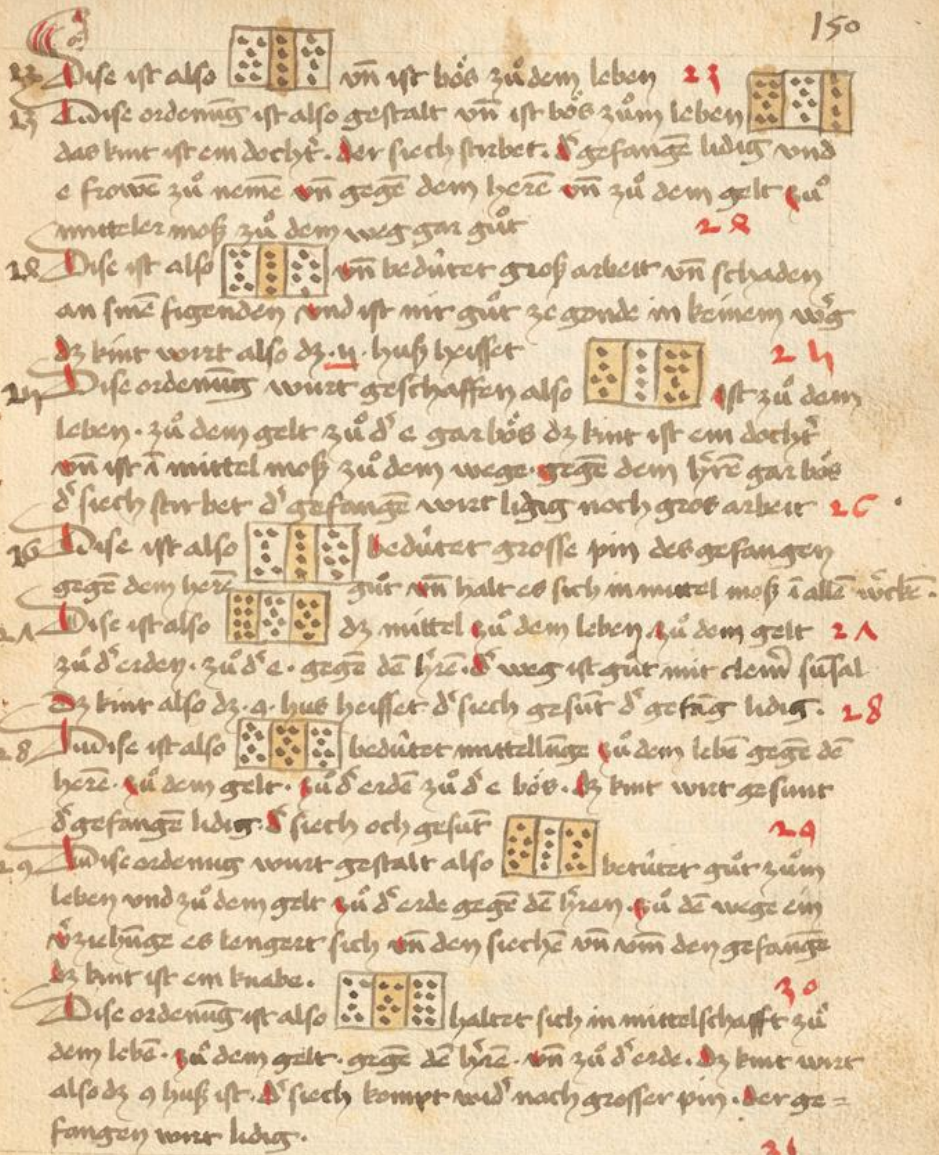 150
22 Dise ist also vn̄ ist bo̊s zů dem leben 23
23 Dise ordenūg ist also gestalt vn̄ ist bo̊s zům leben
das kint ist ein docht̄. der siech stirbet. d' gefangē lidig vnd
e frowē zů nemē vn̄ gegē dem herē vn̄ zů dem gelt zů
mitteler moß zů dem weg gar gůt 28
Dise ist also vn̄ bedu̍tet groß arbeit vn̄ schaden
an sinē figenden vnd ist nit gůt ze gonde in keinem weg
dz kint wirt also dz . huß heisset 24
Dise ordenūg wurt geschaffen also ist zů dem
leben. zů dem gelt zů d' e gar bo̊s dz kint ist ein docht̄
vn̄ ist ī mittel moß zů dem wege. gegē dem h'rē gar bo̊s
d' siech stirbet d' gefangē wirt lidig noch gros arbeit 26
Dise ist also bedu̍tet grosse pin des gefangen
gegē dem herē gůt vn̄ halt es sich in mittel moß ī allē
Dise ist also dz mittel zů dem leben zů dem gelt 2Λ
zů d' erden. zů d' e. gegē dē h'rē. d' weg ist gůt mit
Dz kint also dz .9. hus heisset d' siech gesūt d' gefāg lidig. 28
28 Dise ist also bedu̍tet mittellūge zů dem lebē gegē dē
herē. zů dem gelt. zů d' erdē zů d' e bo̊s. dz kint wirt gesunt
d' gefangē lidig. d' siech och gesūt 29
29 Dise ordenūg wurt gestalt also betu̍tet gůt zům
leben vnd zů dem gelt zů d' erde gegē dē h'ren. zů dē wege ein
v'ziehūge es lengert sich vn̄ den siechē vn̄ vm̄ den gefangē
dz kint ist ein knabe. 30
Dise ordenūg ist also haltet sich in mittelschafft zů
dem lebē. zů dem gelt. gegē dē h'rē. vn̄ zů d' erde. Dz kint wirt
also dz 9 huß ist. d' siech kompt wid' noch grosser pin. der ge=
fangen wirt lidig.
31